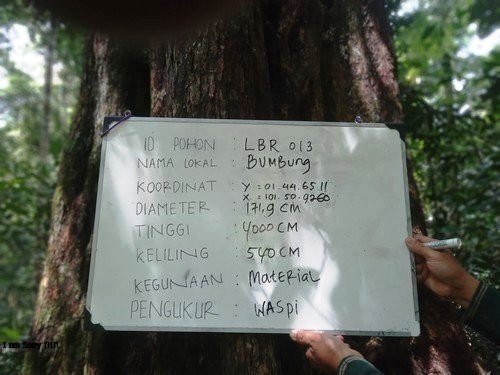 ID POHON : LBR 013
NAMA LOKAL : BUMBUng
KOORDINAT : Y : 01.44.6511
X : 101.50.9260
DIAMETER : 171,9 CM
TINGGI : 4000 CM
KELILING : 540 CM
KEGUNAAN : MateRiaL
PENGUKUR : WASPi